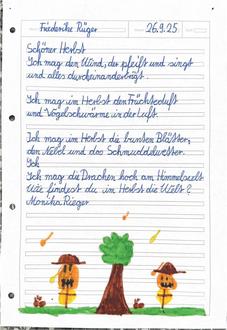 Friederike Rüger 26.9.25
Schöner Herbst
Ich mag den Wind, der pfeift und singt
und alles durcheinanderbringt.
Ich mag im Herbst den Früchteduft
und Vogelschwärme in der Luft.
Ich mag im Herbst die bunten Blätter,
den Nebel und das Schmuddelwetter.
Ich
Ich mag die Drachen hoch am Himmelszelt
Wie findest du im Herbst die Welt?
Monika Rieger